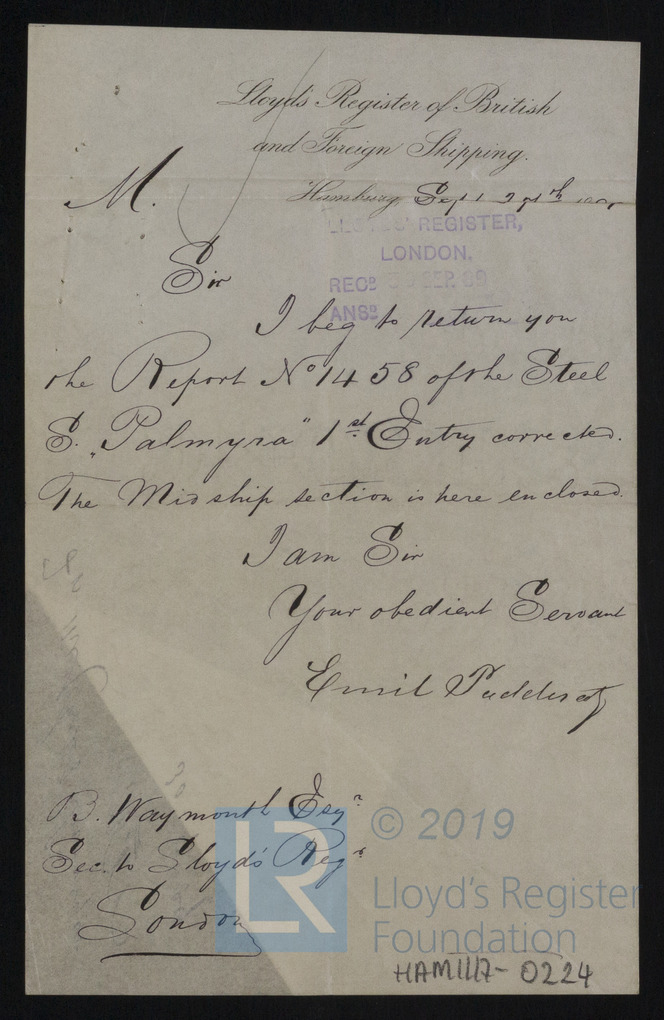 Lloyd's Register of British
and Foreign Shipping.
M.
Hamburg, Sept
LLOYDS' REGISTER,
LONDON.
RECD SEP. 89
ANSD
Sir
I beg to return you
the Report No 1458 of the Steel
S. „Palmyra" 1st Entry corrected.
The Midship section is here enclosed.
I am Sir
Your obedient Servant
Emil
B. Waymouth Esqr
Sec. to Lloyd's Regr
London
LR
© 2019
Lloyd's Register
Foundation
HAM1117-0224